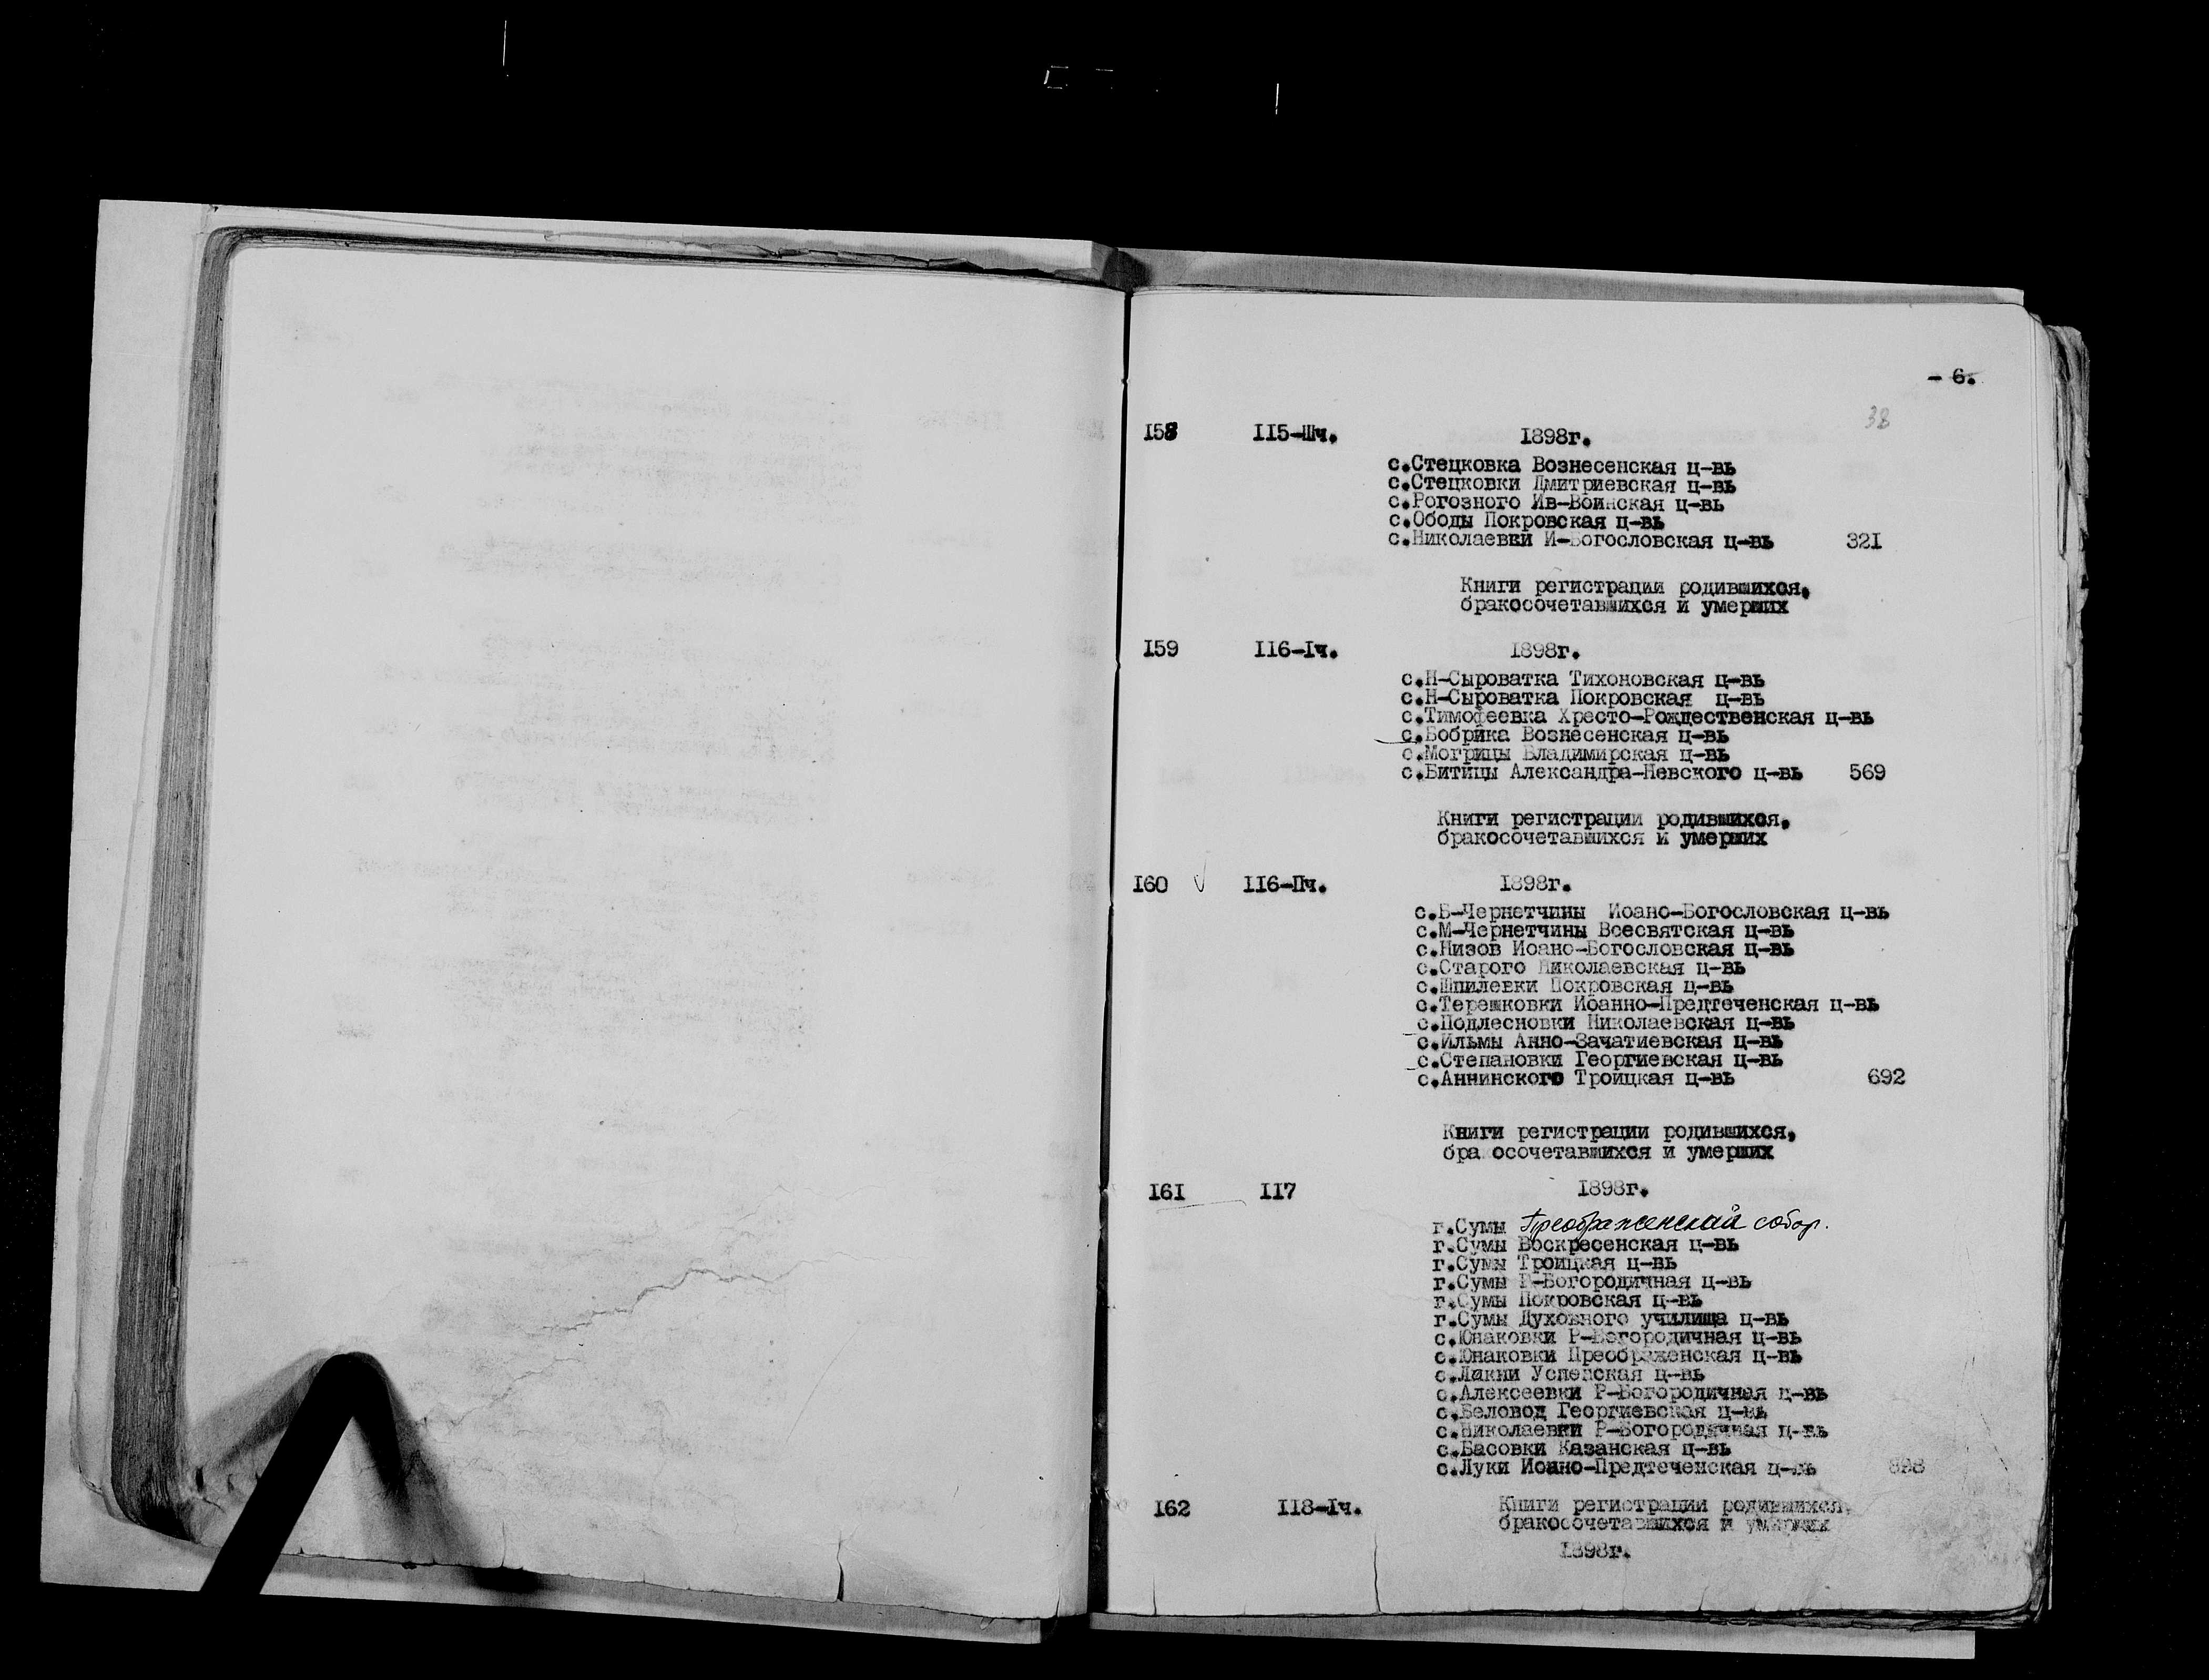 - 6.
38
158 115-Шч. 1898г.
с.Стецковка Вознесенская ц-вь
с.Стецковки Дмитриевская ц-вь
с.Рогозного Ив-Воинская ц-вь
с.Ободы Покровская ц-вь
с.Николаевки И-Богословская ц-вь 321
Книги регистрации родившихся,
бракосочетавшихся и умерших
159 116-1ч. 1898г.
с.Н-Сыроватка Тихоновская ц-вь
с.Н-Сыроватка Покровская ц-вь
с.Тимофеевка Хресто-Рождественская ц-вь
с.Бобрика Вознесенская ц-вь
с.Могрицы Владимирская ц-вь
с.Битицы Александра-Невского ц-вь 569
Книги регистрации родившихся,
бракосочетавшихся и умерших
160 √ 116-Пч. 1898г.
с.Б-Чернетчины Иоано-Богословская ц-вь
с.М-Чернетчины Всесвятская ц-вь
с.Низов Иоано-Богословская ц-вь
с.Старого Николаевская ц-вь
с.Шпилевки Покровская ц-вь
с.Терешковки Иоанно-Предтеченская ц-вь
с.Подлесновки Николаевская ц-вь
с.Ильмы Анно-Зачатиевская ц-вь
с.Степановки Георгиевская ц-вь
с.Аннинского Троицкая ц-вь 692
Книги регистрации родившихся,
бра осочетавшихся и умерших
161 117 1898г.
г.Сумы Преображенский собор.
г.Сумы Воскресенская ц-вь
г.Сумы Троицкая ц-вь
г.Сумы Р-Богородичная ц-вь
г.Сумы Покровская ц-вь
г.Сумы Духовного училища ц-вь
с.Юнаковки Р-Богородичная ц-вь
с.Юнаковки Преображенская ц-вь
с.Локни Успенская ц-вь
с.Алексеевки Р-Богородичная ц-вь
с.Беловод Георгиевская ц-вь
с.Николаевки Р-Богородичная ц-вь
с.Басовки Казанская ц-вь
с.Луки Иоано-Предтеченская ц-вь 898
162 118-1ч. Книги регистрации родившихся,
бракосочетавшихся и умерших
1898г.